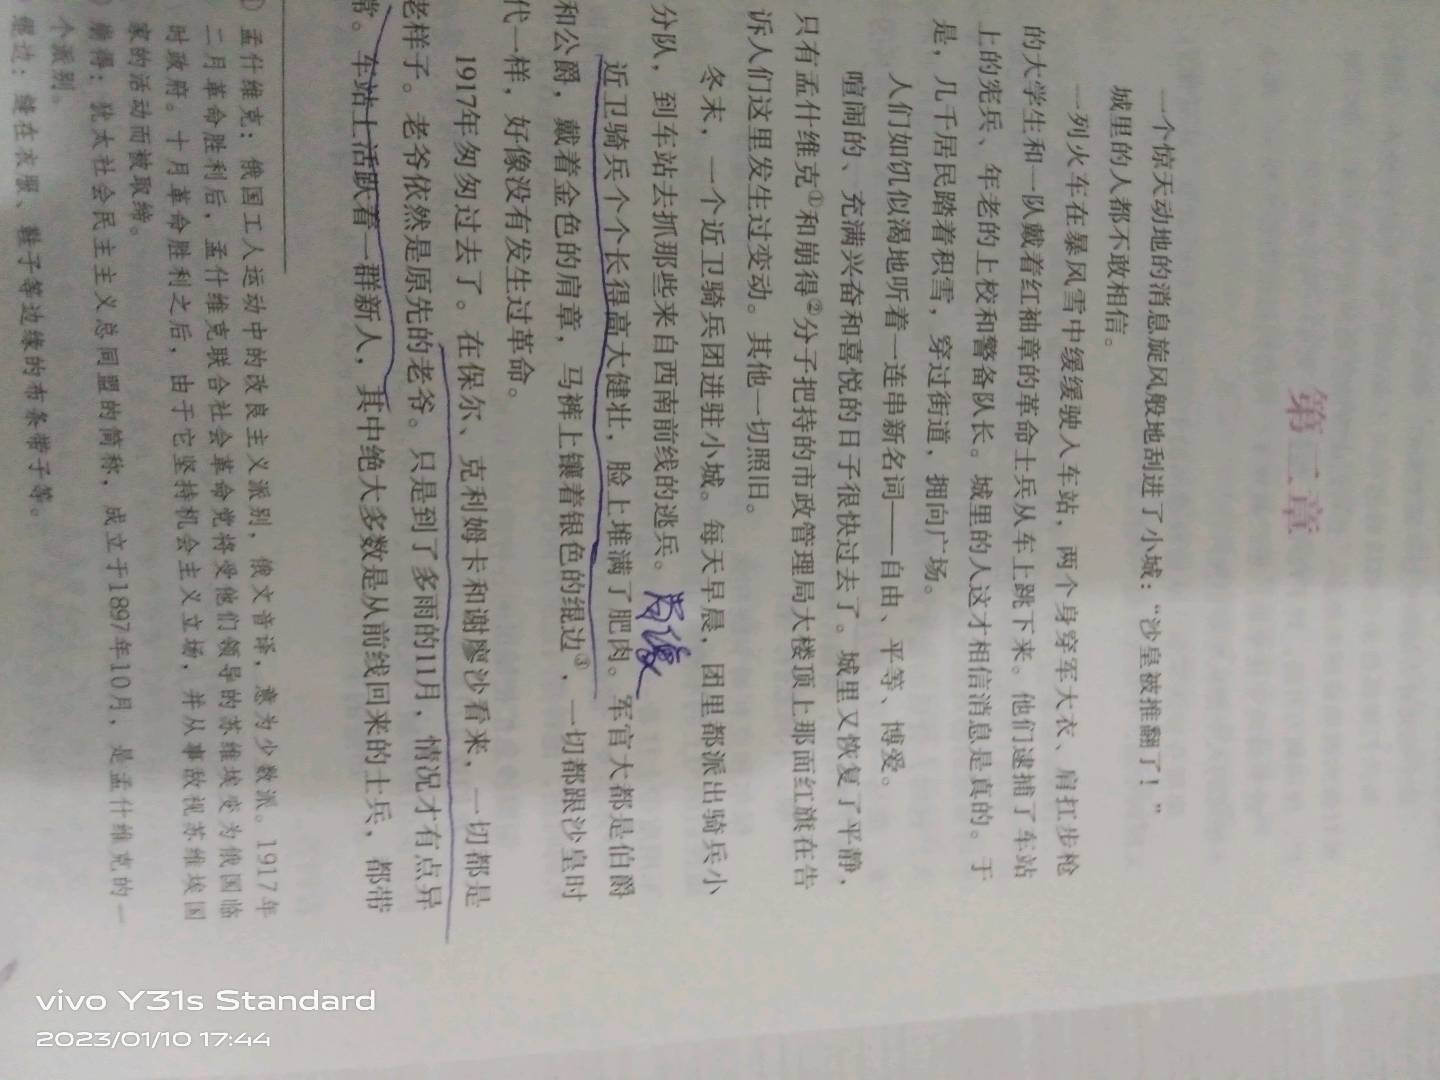 第二章
一个惊天动地的消息旋风般地刮进了小城：“沙皇被推翻了！”
城里的人都不敢相信。
一列火车在暴风雪中缓缓驶入车站，两个身穿军大衣、肩扛步枪
的大学生和一队戴着红袖章的革命士兵从车上跳下来。他们逮捕了车站
上的宪兵、年老的上校和警备队长。城里的人这才相信消息是真的。于
是，几千居民踏着积雪，穿过街道，拥向广场。
人们如饥似渴地听着一连串新名词——自由、平等、博爱。
喧闹的、充满兴奋和喜悦的日子很快过去了。城里又恢复了平静，
只有孟什维克①和崩得②分子把持的市政管理局大楼顶上那面红旗在告
诉人们这里发生过变动。其他一切照旧。
冬末，一个近卫骑兵团进驻小城。每天早晨，团里都派出骑兵小
分队，到车站去抓那些来自西南前线的逃兵。
近卫骑兵个个长得高大健壮，脸上堆满了肥肉。军官大都是伯爵
和公爵，戴着金色的肩章，马裤上镶着银色的绲边③，一切都跟沙皇时
代一样，好像没有发生过革命。
1917年匆匆过去了。在保尔、克利姆卡和谢廖沙看来，一切都是
老样子。老爷依然是原先的老爷。只是到了多雨的11月，情况才有点异
常。车站上活跃着一群新人，其中绝大多数是从前线回来的士兵，都带
① 孟什维克：俄国工人运动中的改良主义派别，俄文音译，意为少数派。1917年
二月革命胜利后，孟什维克联合社会革命党将受他们领导的苏维埃变为俄国临
时政府。十月革命胜利之后，由于它坚持机会主义立场，并从事敌视苏维埃国
家的活动而被取缔。
崩得：犹太社会民主主义总同盟的简称，成立于1897年10月，是孟什维克的一
个派别。
绲边：缝在衣服、鞋子等边缘的布条带子等。
vivo Y31s Standard
2023/01/10 17:44